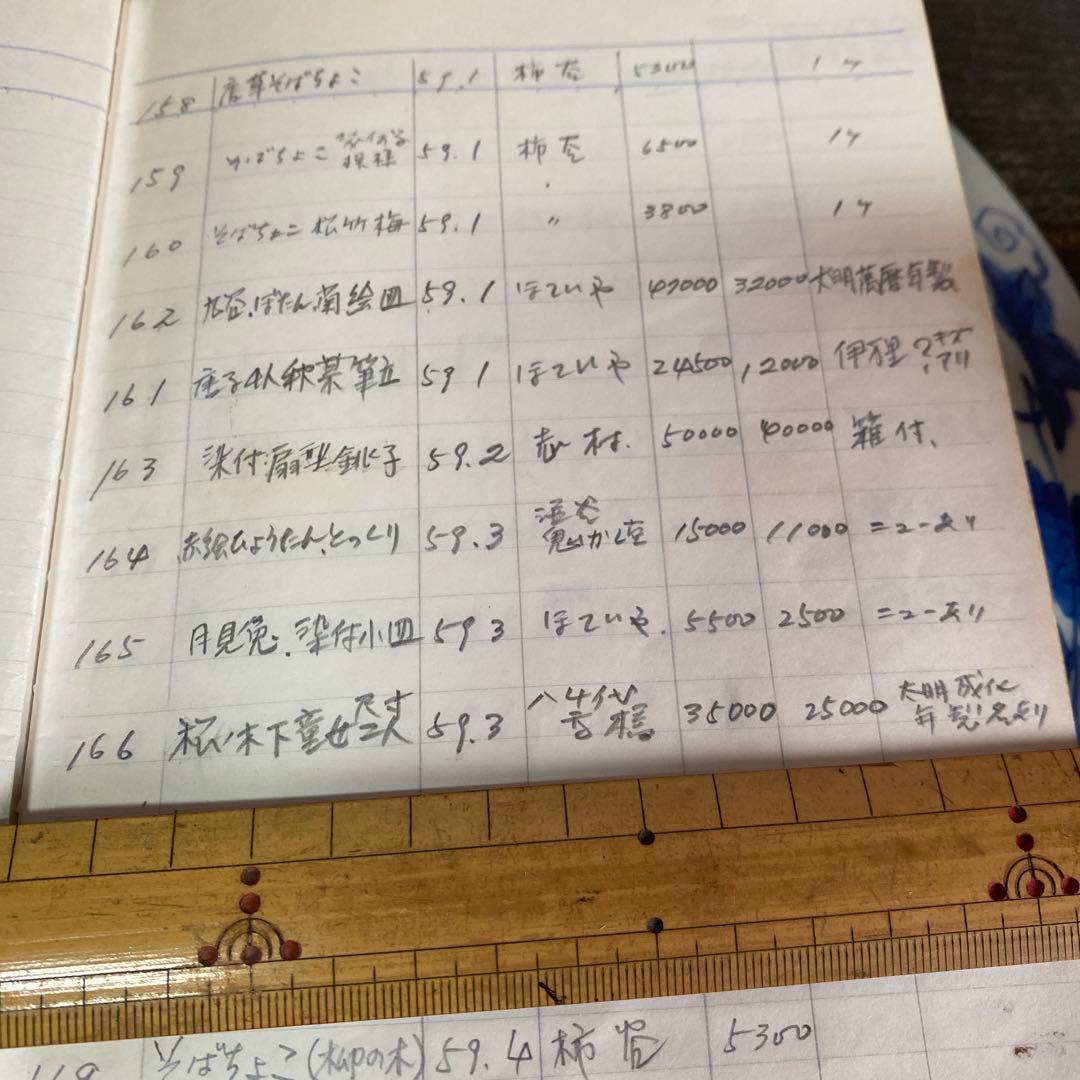 158 唐草そばちょこ 59.1 柿右 5300 1ケ
159 そばちょこ 模様 59.1 柿右 6500 1ケ
160 そばちょこ 松竹梅 59.1 〃 3800 1ケ
162 九谷、ぼたん蘭絵皿 59.1 ほていや 47000 32000 大明萬暦年製
161 唐子4人 筆立 59.1 ほていや 24500 12000 伊万里?キズアリ
163 染付扇型銚子 59.2 志村. 50000 40000 箱付、
164 赤絵ひょうたんとっくり 59.3 15000 11000 ニューあり
165 月見兎、染付小皿 59 3 ほていや. 5500 2500 ニューあり
166 松ノ木下童女二人 尺寸 59.3 八千代 35000 25000 大明成化年製名あり
そばちょこ(柳の木) 59.4 柿 5300